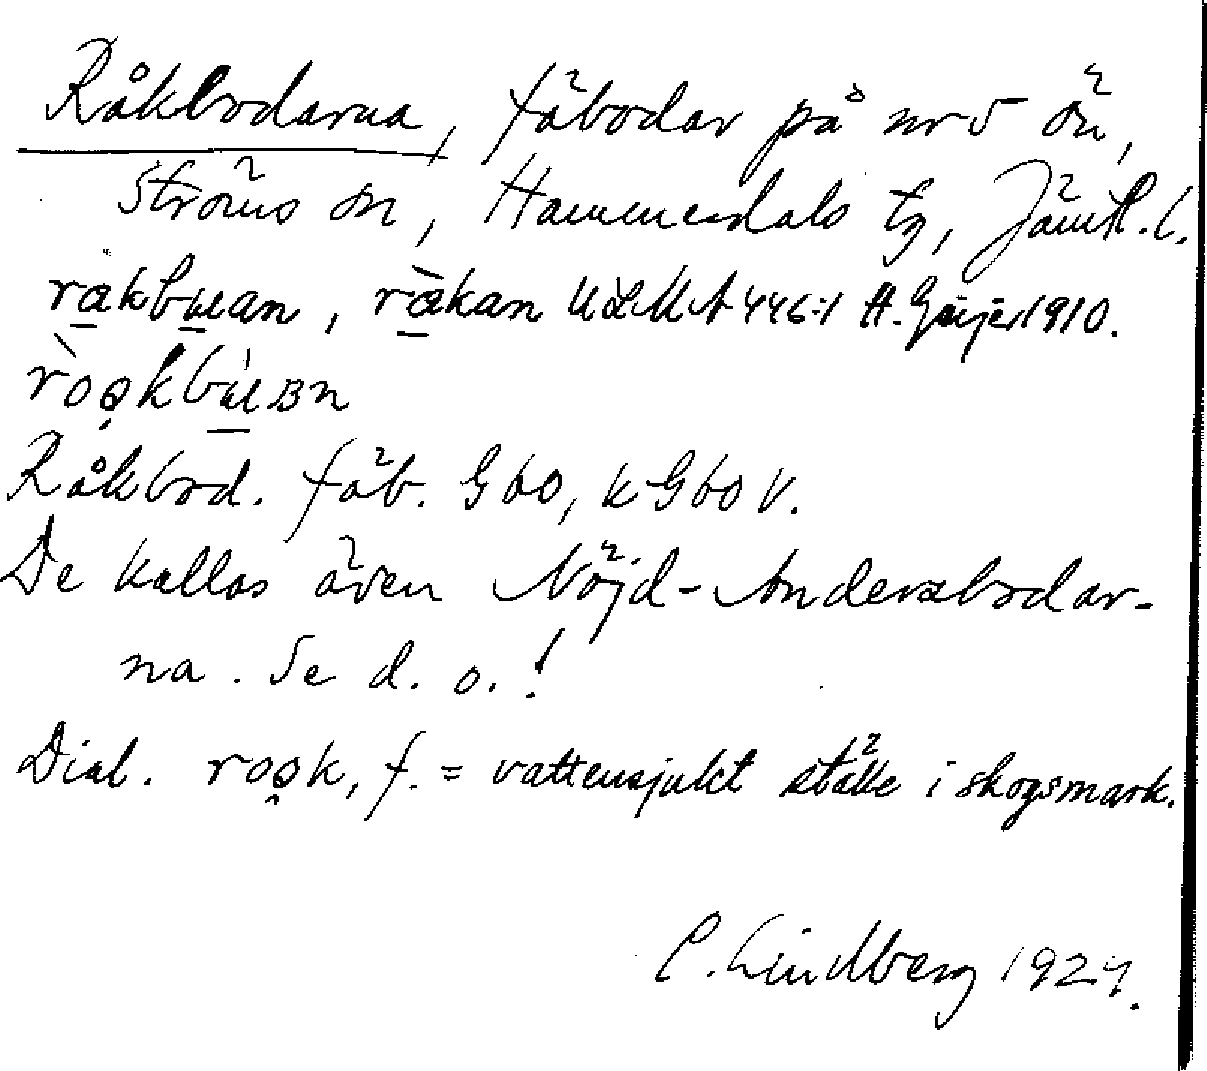 Råkbodarna, fäbodar på nr 5 Ön,
Ströms sn, Hammerdals tg, Jämtl. l.
råkbuan, rå̀kan ULMA 446:1 H. Geijer 1910.
Råkbod. fäb. G60, kG60 V.
De kallas även Nöjd-Andersbodar-
na. Se d. o.!
Dial. roǫk, f. = vattensjukt ställe i skogsmark.
C. Lindberg 1927.